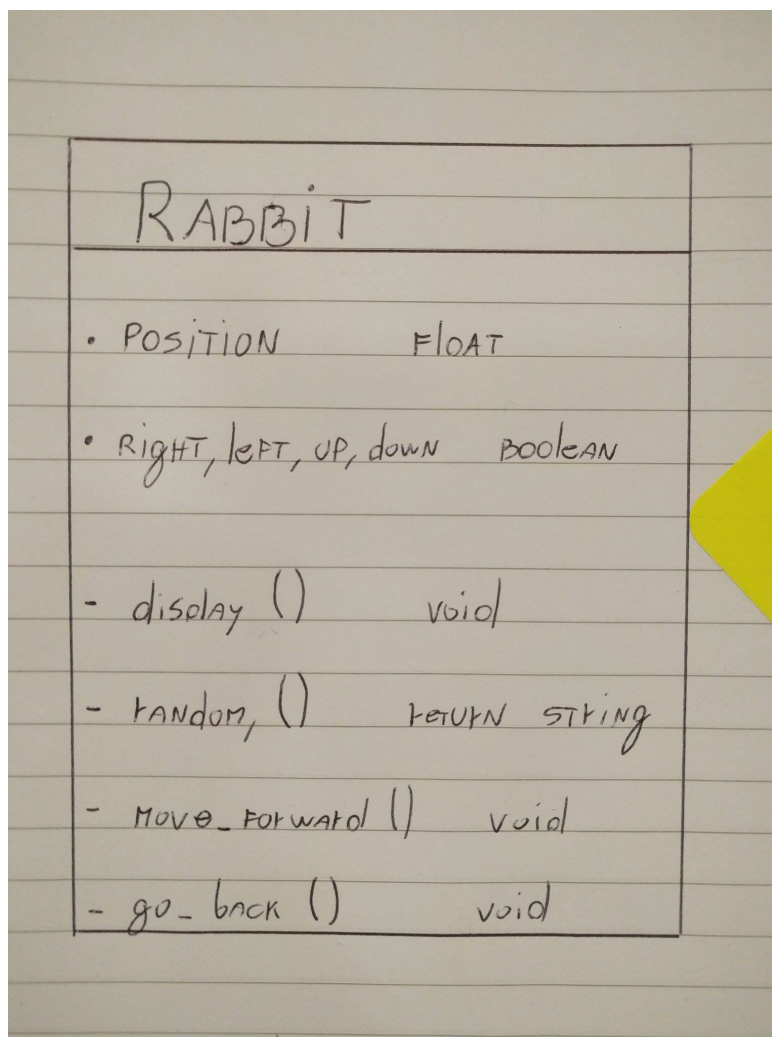 RABBiT
• POSiTiON FloAT
• RigHT, leFT, UP, dowN BOOleAN
- display () void
- rANdom, () reTURN STriNg
- Move_ForwArd () void
- go_bAcK () void